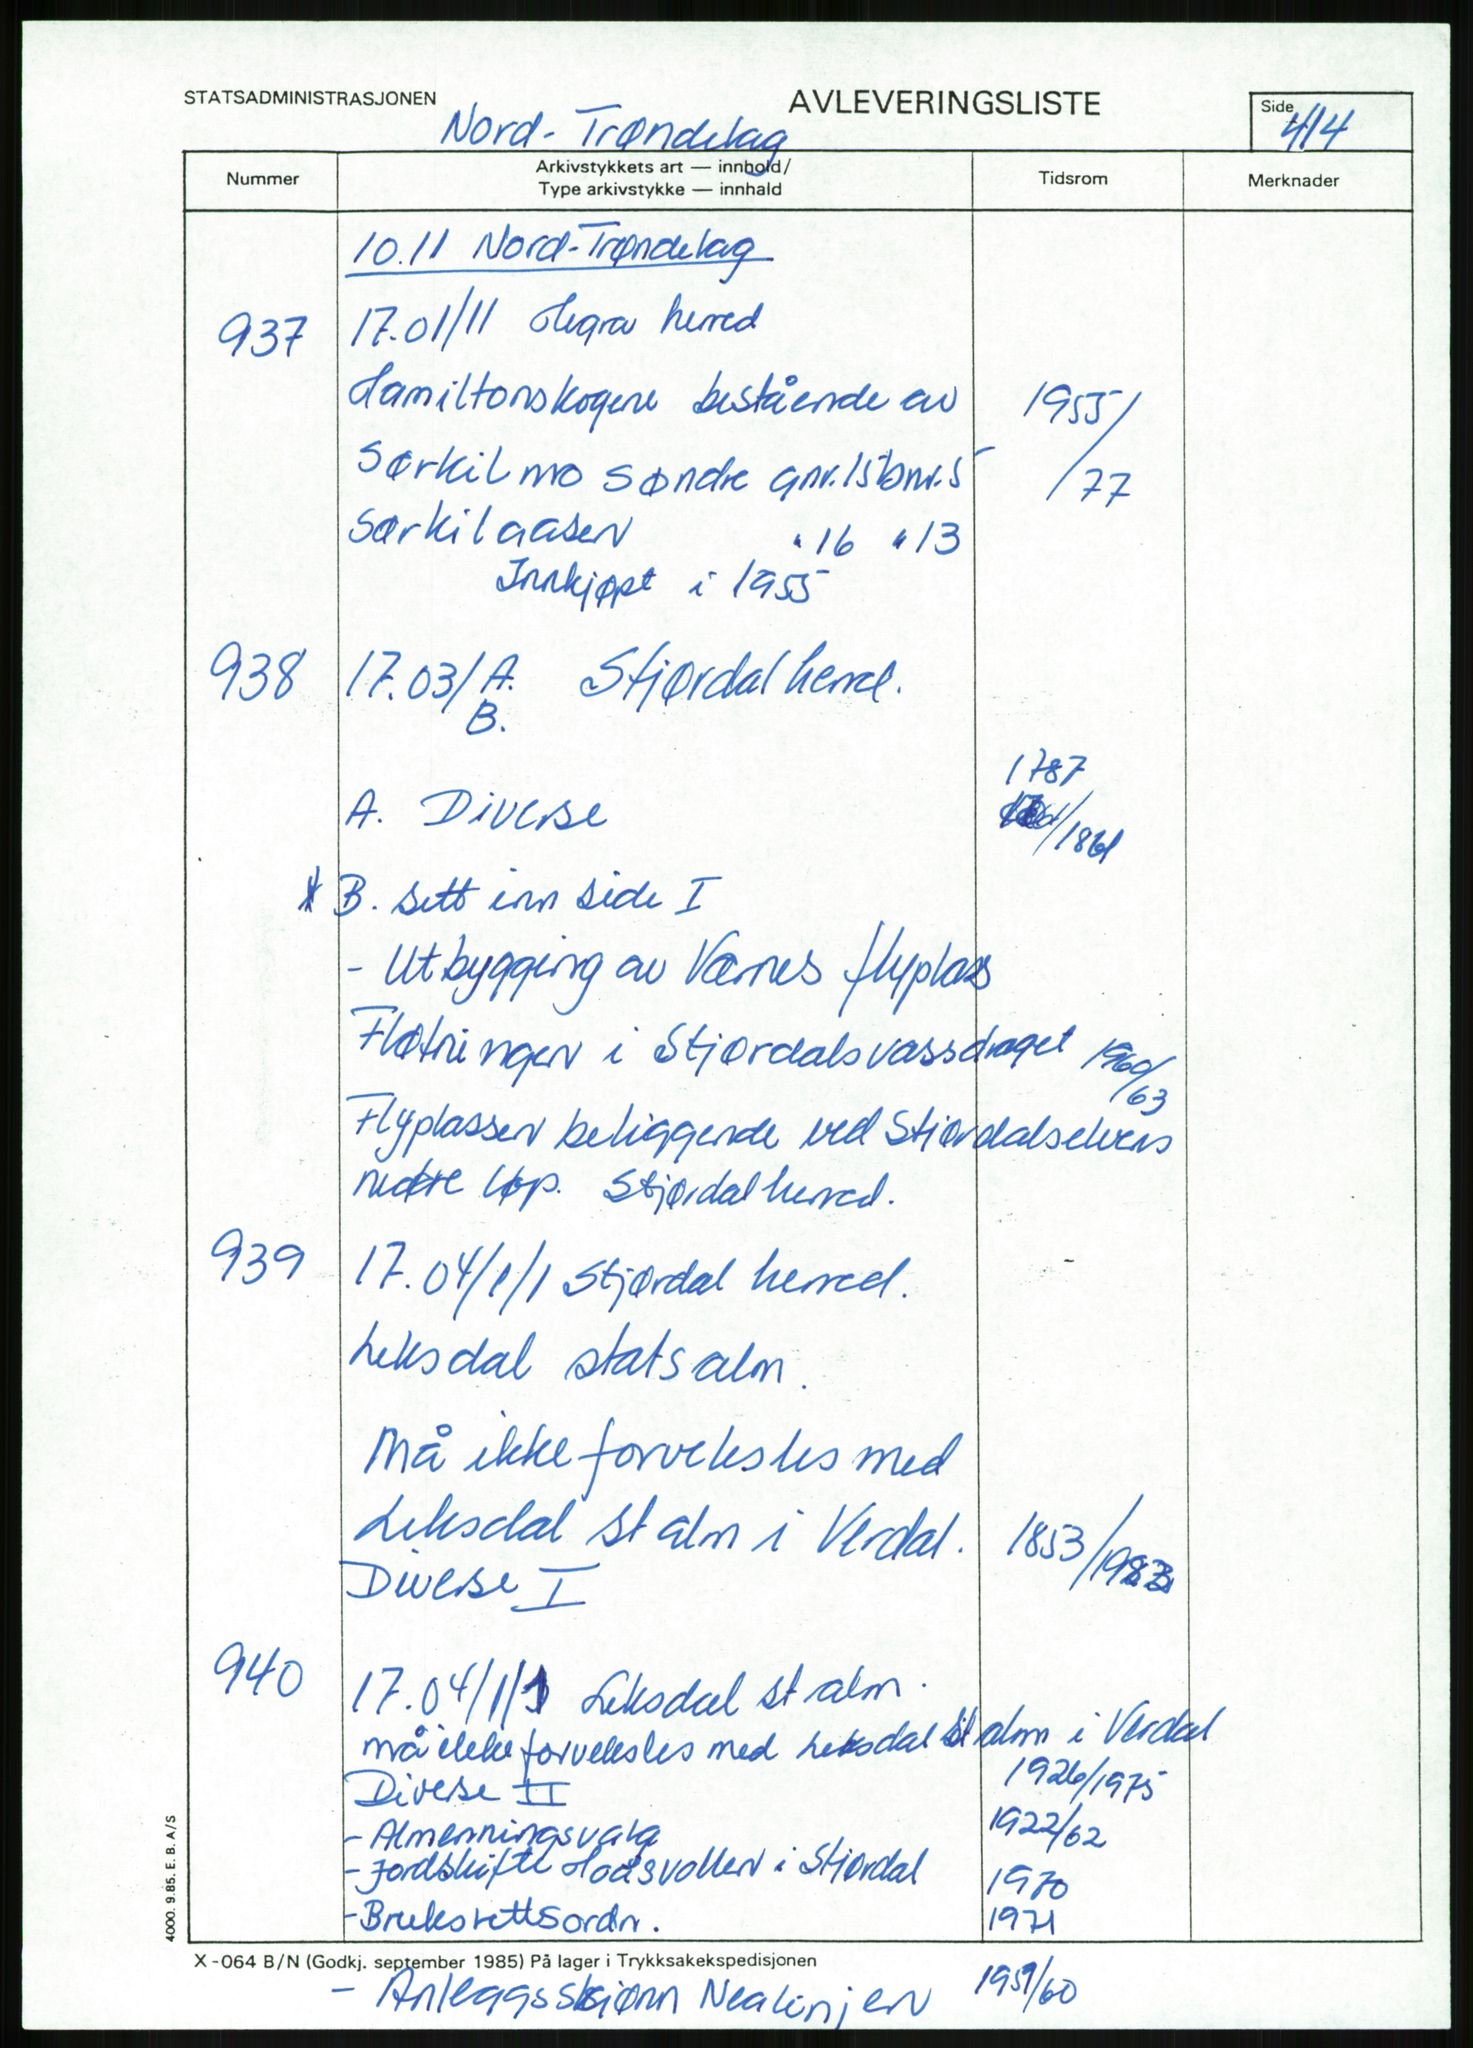 STATSADMINISTRASJONEN
AVLEVERINGSLISTE
Side
414
Nord-Trøndelag
Nummer
Arkivstykkets art — innhold/
Type arkivstykke — innhald
Tidsrom
Merknader
10.11 Nord-Trøndelag
937 17.01/11 Hegra herred
Hamiltonskogene bestående av 1955/
Sørkilmo søndre gnr. 15 bnr. 5 /77
Sørkilaasen " 16 " 13
Innkjøpt i 1955
938 17.03/A. Stjørdal herred.
B.
1787
A. Diverse /1861
* B. sett inn side I
- Utbygging av Værnes flyplass
Fløtningen i Stjørdalsvassdraget 1960/
63
Flyplassen beliggende ved Stjørdalselvens
nedre løp. Stjørdal herred.
939 17.04/1/1 Stjørdal herred.
Leksdal statsalm.
Må ikke forveksles med
Leksdal st alm i Verdal. 1853/1983
Diverse I
940 17.04/1/1 Leksdal st alm.
må ikke forveksles med Leksdal st alm i Verdal
Diverse II 1926/1975
- Almenningsvalg 1922/62
- Jordskifte Hoåsvollen i Stjørdal 1970
- Bruksrettsordn. 1971
4000. 9.85. E. B. A/S
X-064 B/N (Godkj. september 1985) På lager i Trykksakekspedisjonen
- Anleggsskjønn Nealinjen 1959/60